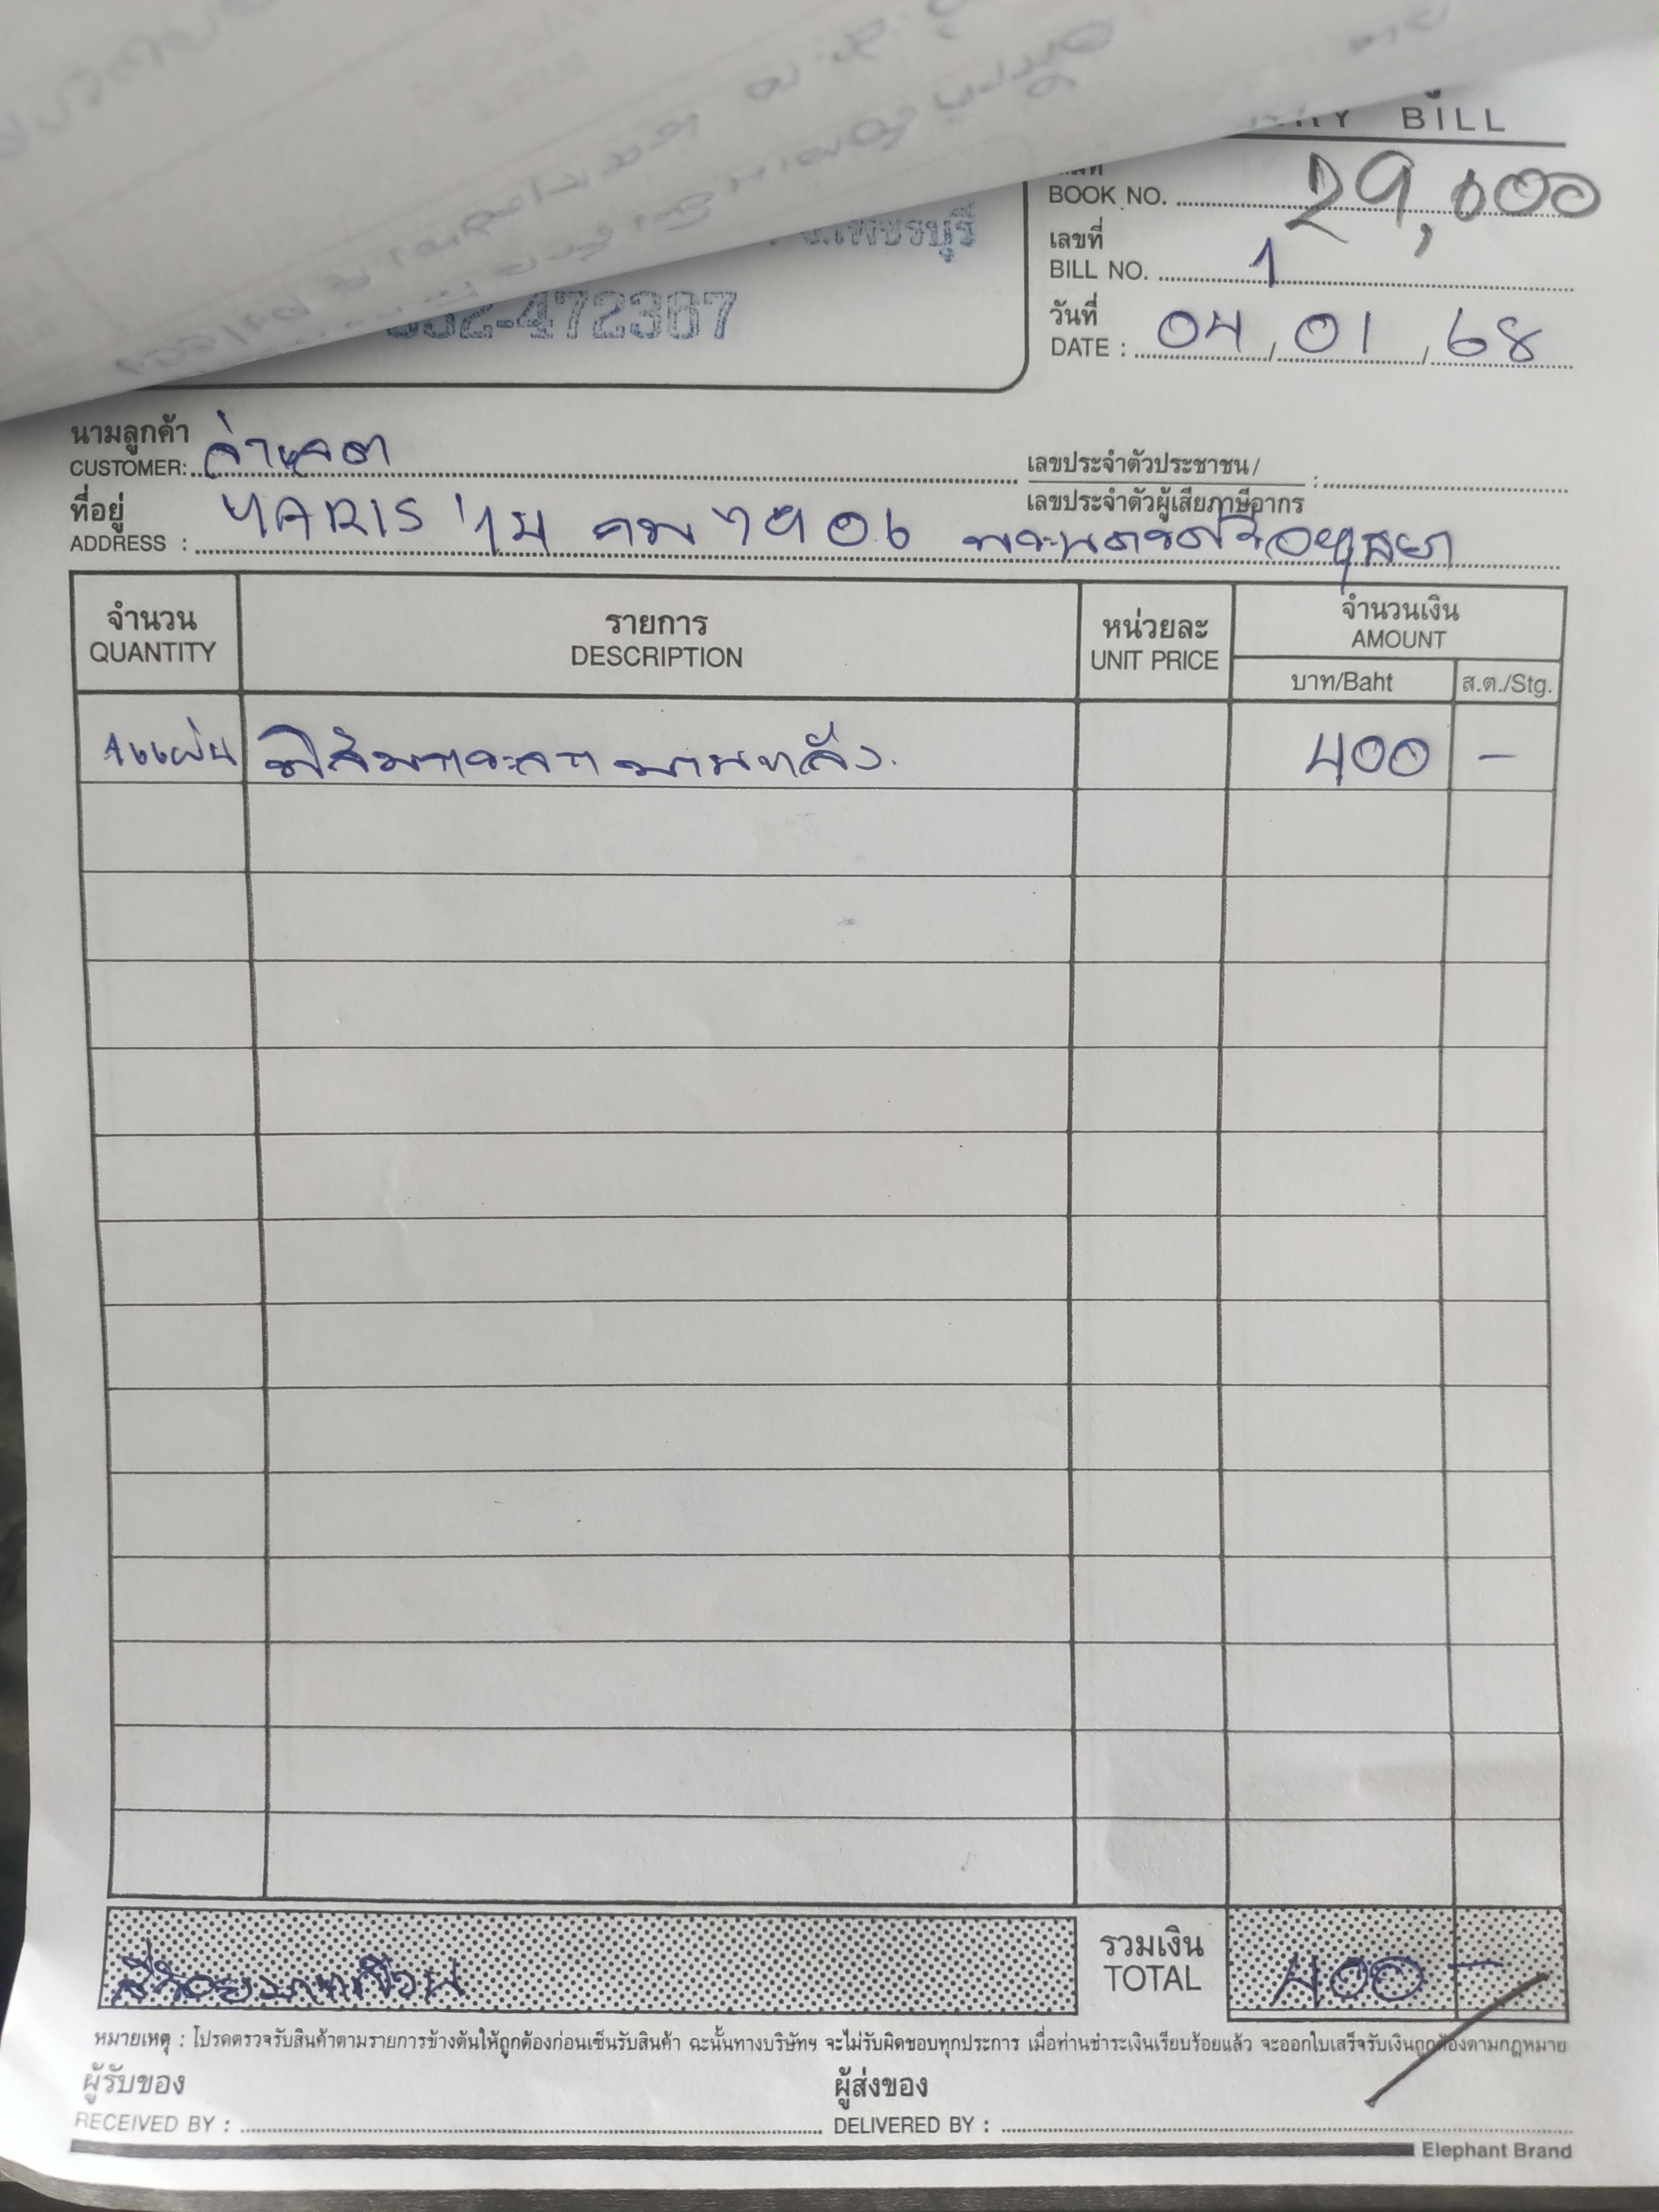 BILL
BOOK NO. 29,000
จ.เพชรบุรี
เลขที่
BILL NO. 1
472367
วันที่
DATE : 04 / 01 / 68
นามลูกค้า
CUSTOMER:
เลขประจำตัวประชาชน /
เลขประจำตัวผู้เสียภาษีอากร :
ที่อยู่
ADDRESS : YARIS '14 7906 พระนครศรีอยุธยา
จำนวน รายการ หน่วยละ จำนวนเงิน
QUANTITY DESCRIPTION UNIT PRICE AMOUNT
บาท/Baht ส.ต./Stg.
1แผ่น ฟิล์มกระจกบานหลัง 400 -
สี่ร้อยบาทถ้วน รวมเงิน TOTAL 400 -
หมายเหตุ : โปรดตรวจรับสินค้าตามรายการข้างต้นให้ถูกต้องก่อนเซ็นรับสินค้า ฉะนั้นทางบริษัทฯ จะไม่รับผิดชอบทุกประการ เมื่อท่านชำระเงินเรียบร้อยแล้ว จะออกใบเสร็จรับเงินถูกต้องตามกฎหมาย
ผู้รับของ ผู้ส่งของ
RECEIVED BY : DELIVERED BY :
Elephant Brand